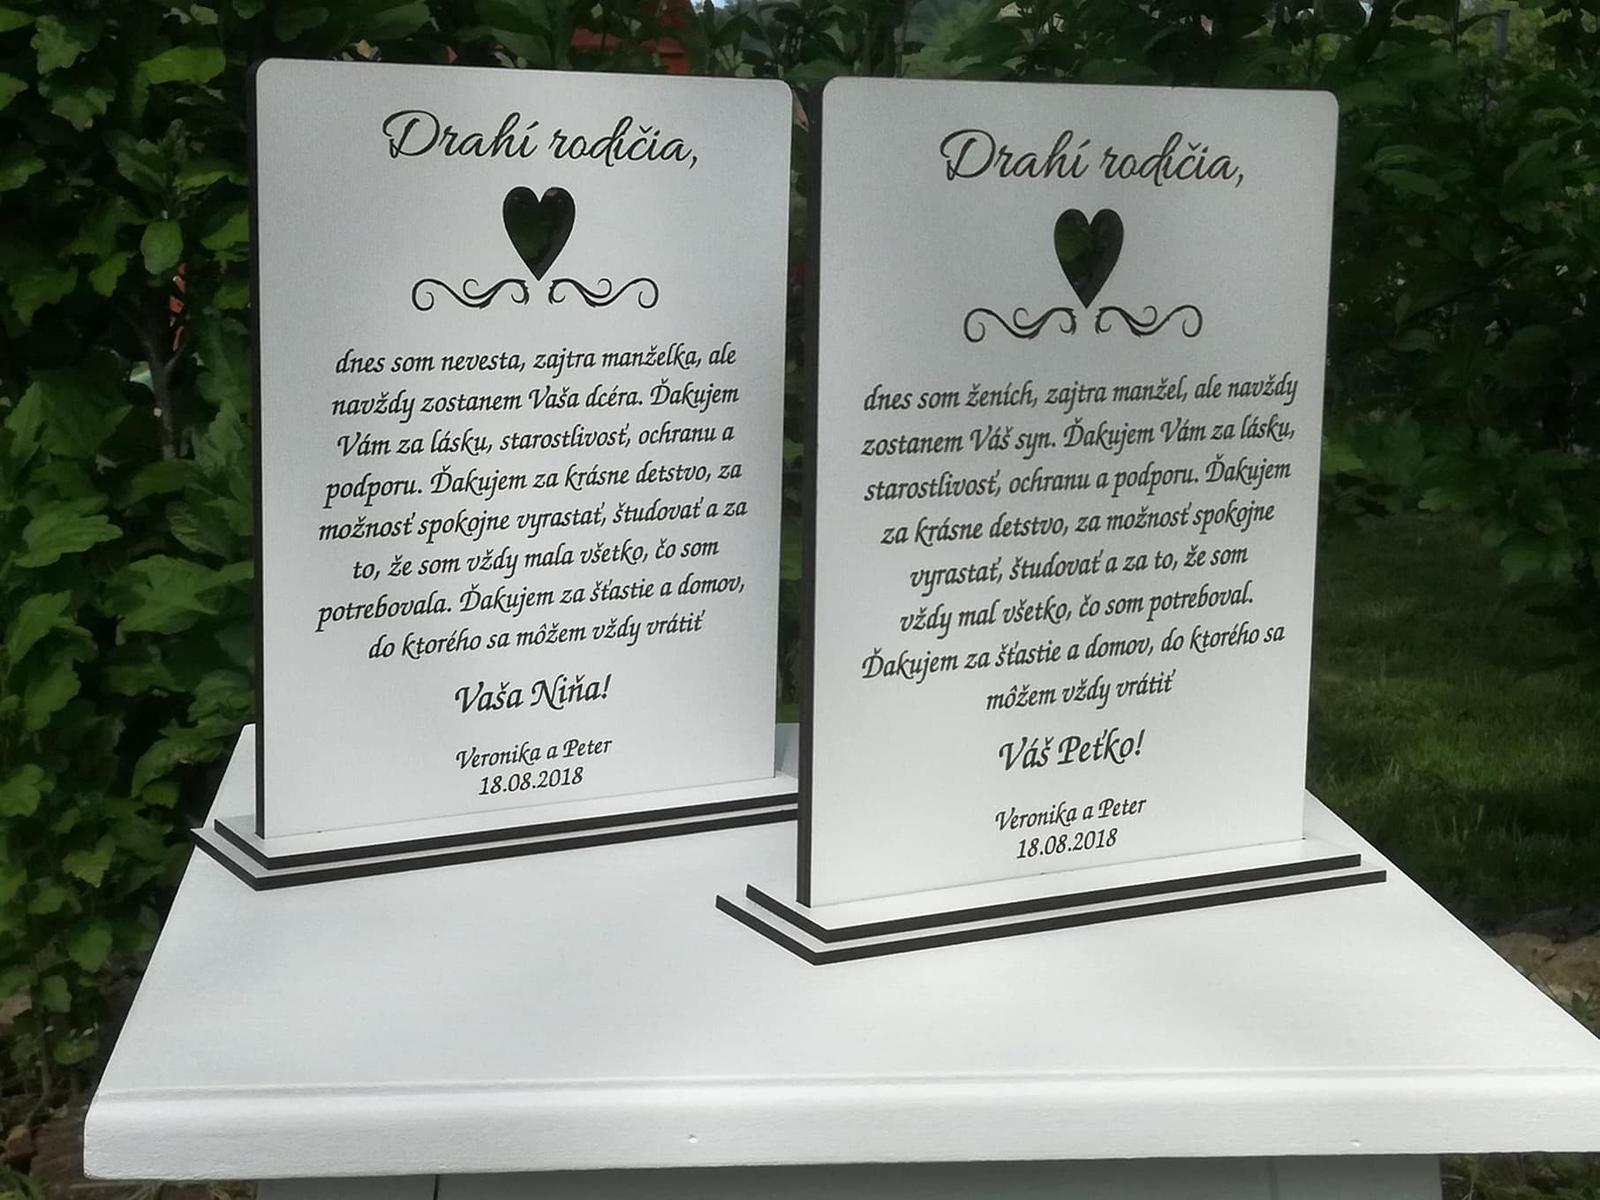 Drahí rodičia,
dnes som nevesta, zajtra manželka, ale
navždy zostanem Vaša dcéra. Ďakujem
Vám za lásku, starostlivosť, ochranu a
podporu. Ďakujem za krásne detstvo, za
možnosť spokojne vyrastať, študovať a za
to, že som vždy mala všetko, čo som
potrebovala. Ďakujem za šťastie a domov,
do ktorého sa môžem vždy vrátiť
Vaša Niňa!
Veronika a Peter
18.08.2018
Drahí rodičia,
dnes som ženích, zajtra manžel, ale navždy
zostanem Váš syn. Ďakujem Vám za lásku,
starostlivosť, ochranu a podporu. Ďakujem
za krásne detstvo, za možnosť spokojne
vyrastať, študovať a za to, že som
vždy mal všetko, čo som potreboval.
Ďakujem za šťastie a domov, do ktorého sa
môžem vždy vrátiť
Váš Peťko!
Veronika a Peter
18.08.2018